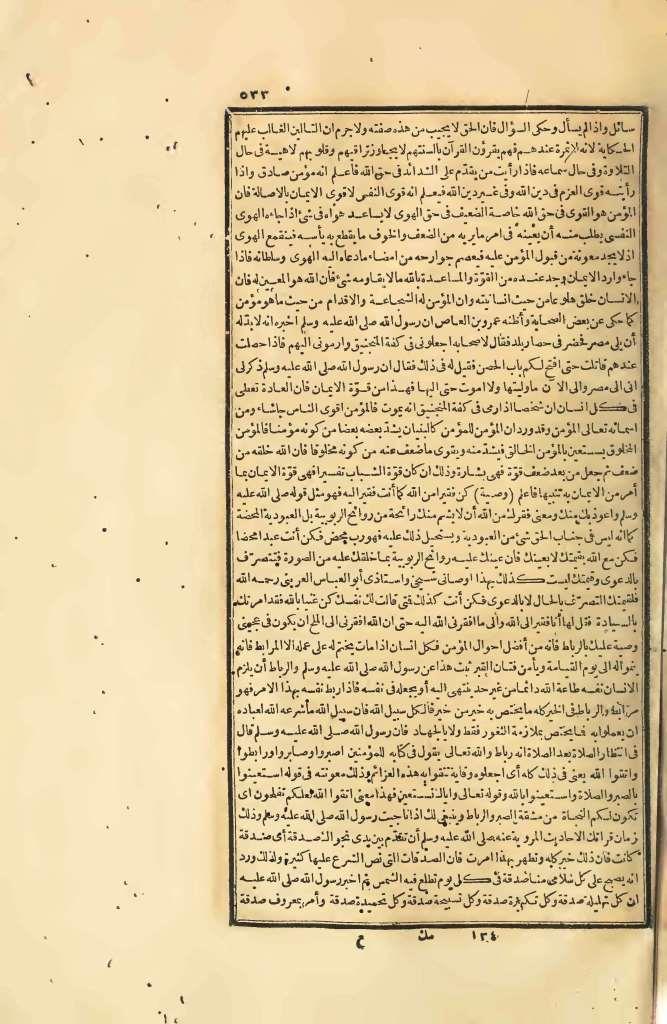 ٥٣٣
سائل واذا لم يسأل وحكى السؤال فان الحق لا يجيب من هذه صفته ولا جرم ان التالين الغالب عليهم
الحكاية لانه لا ثمرة عندهم فهم يقرؤن القرآن بألسنتهم لا يجاوز تراقيهم وقلوبهم لاهية فى حال
التلاوة وفى حال سماعه فاذا رأيت من يقدم على الشدائد فى حق الله فاعلم انه مؤمن صادق واذا
رأيته قوى العزم فى دين الله وفى غير دين الله فيعلم انه قوى النفس لا قوى الايمان بالاصالة فان
المؤمن هو القوى فى حق الله خاصة الضعيف فى حق الهوى لا يساعد هواه فى شئ اذا جاءه الهوى
النفسى يطلب منه أن يعينه فى امر ما يريه من الضعف والخوف ما يقطع به يأسه فينقمع الهوى
اذ لا يجد معونة من قبول المؤمن عليه فيعصم جوارحه من امضاء ما دعاه اليه الهوى وسلطانه فاذا
جاء وارد الايمان وجد عنده من القوة والمساعدة بالله ما لا يقاومه شئ فان الله هو المعين له فان
الانسان خلق هلوعا من حيث انسانيته وان المؤمن له الشجاعة والاقدام من حيث ما هو مؤمن
كما حكى عن بعض الصحابة وأظنه عمرو بن العاص ان رسول الله صلى الله عليه وسلم اخبره انه لا بد له
أن يلى مصر فحضر فى حصار بلد فقال لاصحابه اجعلونى فى كفة المنجنيق وارمونى اليهم فاذا حصلت
عندهم قاتلت حتى افتح لكم باب الحصن فقيل له فى ذلك فقال ان رسول الله صلى الله عليه وسلم ذكر لى
انى الى مصر والى الآن ما وليتها ولا اموت حتى اليها فهذا من قوة الايمان فان العادة تعطى
فى كل انسان ان شخصا اذا رمى فى كفة المنجنيق انه يموت فالمؤمن اقوى الناس جاشا ومن
اسمائه تعالى المؤمن وقد ورد ان المؤمن للمؤمن كالبنيان يشد بعضه بعضا من كونه مؤمنا فالمؤمن
المخلوق يستعين بالمؤمن الخالق فيشد منه ويقوى ما ضعف عنه من كونه مخلوقا فان الله خلقه من
ضعف ثم جعل من بعد ضعف قوة فهى بشارة وذلك ان كان قوة الشباب تفسيرا فهى قوة الايمان بما
أمر من الايمان به تنبيها فاعلم (وصية) كن فقيرا من الله كما أنت فقير اليه فهو مثل قوله صلى الله عليه
وسلم واعوذ بك منك ومعنى فقرك من الله أن لا يشم منك رائحة من روائح الربوبية بل العبودية المحضة
كما انه ليس فى جناب الحق شئ من العبودية ويستحيل ذلك عليه فهو رب محض فكن أنت عبدا محضا
فكن مع الله بقيمتك لا بعينك فان عينك عليه روائح الربوبية بما خلقك عليه من الصورة فتتصرف
بالدعوى وقيمتك ليست كذلك بهذا اوصانى شيخى واستاذى أبو العباس العرينى رحمه الله
فلقيمتك التصرف بالحال لا بالدعوى فكن أنت كذلك فتى قالت لك نفسك كن غنيا بالله فقد امرتك
بالسيادة فقل لها أنا فقير الى الله والى ما افقرنى الله اليه حتى ان الله افقرنى الى الملح ان يكون فى عجينى
وصية عليك بالرباط فانه من أفضل احوال المؤمن فكل انسان اذا مات يختم له على عمله الا المرابط فانه
ينمو له الى يوم القيامة ويأمن فتان القبر ثبت هذا عن رسول الله صلى الله عليه وسلم والرباط أن يلزم
الانسان نفسه طاعة الله دائما من غير حد ينتهى اليه أو يجعله فى نفسه فاذا ربط نفسه بهذا الامر فهو
مرابط والرباط فى الخير كله ما يختص به خير من خير فالكل سبيل الله فان سبيل الله ما شرعه الله لعباده
ان يعملوا به فما يختص بملازمة الثغور فقط ولا بالجهاد فان رسول الله صلى الله عليه وسلم قال
فى انتظار الصلاة بعد الصلاة انه رباط والله تعالى يقول فى كتابه للمؤمنين اصبروا وصابروا ورابطوا
واتقوا الله يعنى فى ذلك كله أى اجعلوه وقاية تتقوا به هذه العزائم وذلك معونته فى قوله استعينوا
بالصبر والصلاة واستعينوا بالله وقوله تعالى واياك نستعين فهذا معنى اتقوا الله لعلكم تفلحون اى
تكون لكم النجاة من مشقة الصبر والرباط وينبغى لك اذا ناجيت رسول الله صلى الله عليه وسلم وذلك
زمان قراءتك الاحاديث المروية عنه صلى الله عليه وسلم أن تتقدم بين يدى نجواك صدقة أى صدقة
كانت فان ذلك خير لك واطهر بهذا امرت فان الصدقات التى نص الشرع عليها كثيرة ولذلك ورد
انه يصبح على كل سلامى منا صدقة فى كل يوم تطلع فيه الشمس ثم اخبر رسول الله صلى الله عليه
ان كل تهليلة صدقة وكل تكبيرة صدقة وكل تسبيحة صدقة وكل تحميدة صدقة وأمر بمعروف صدقة
١٣٤ مك ع